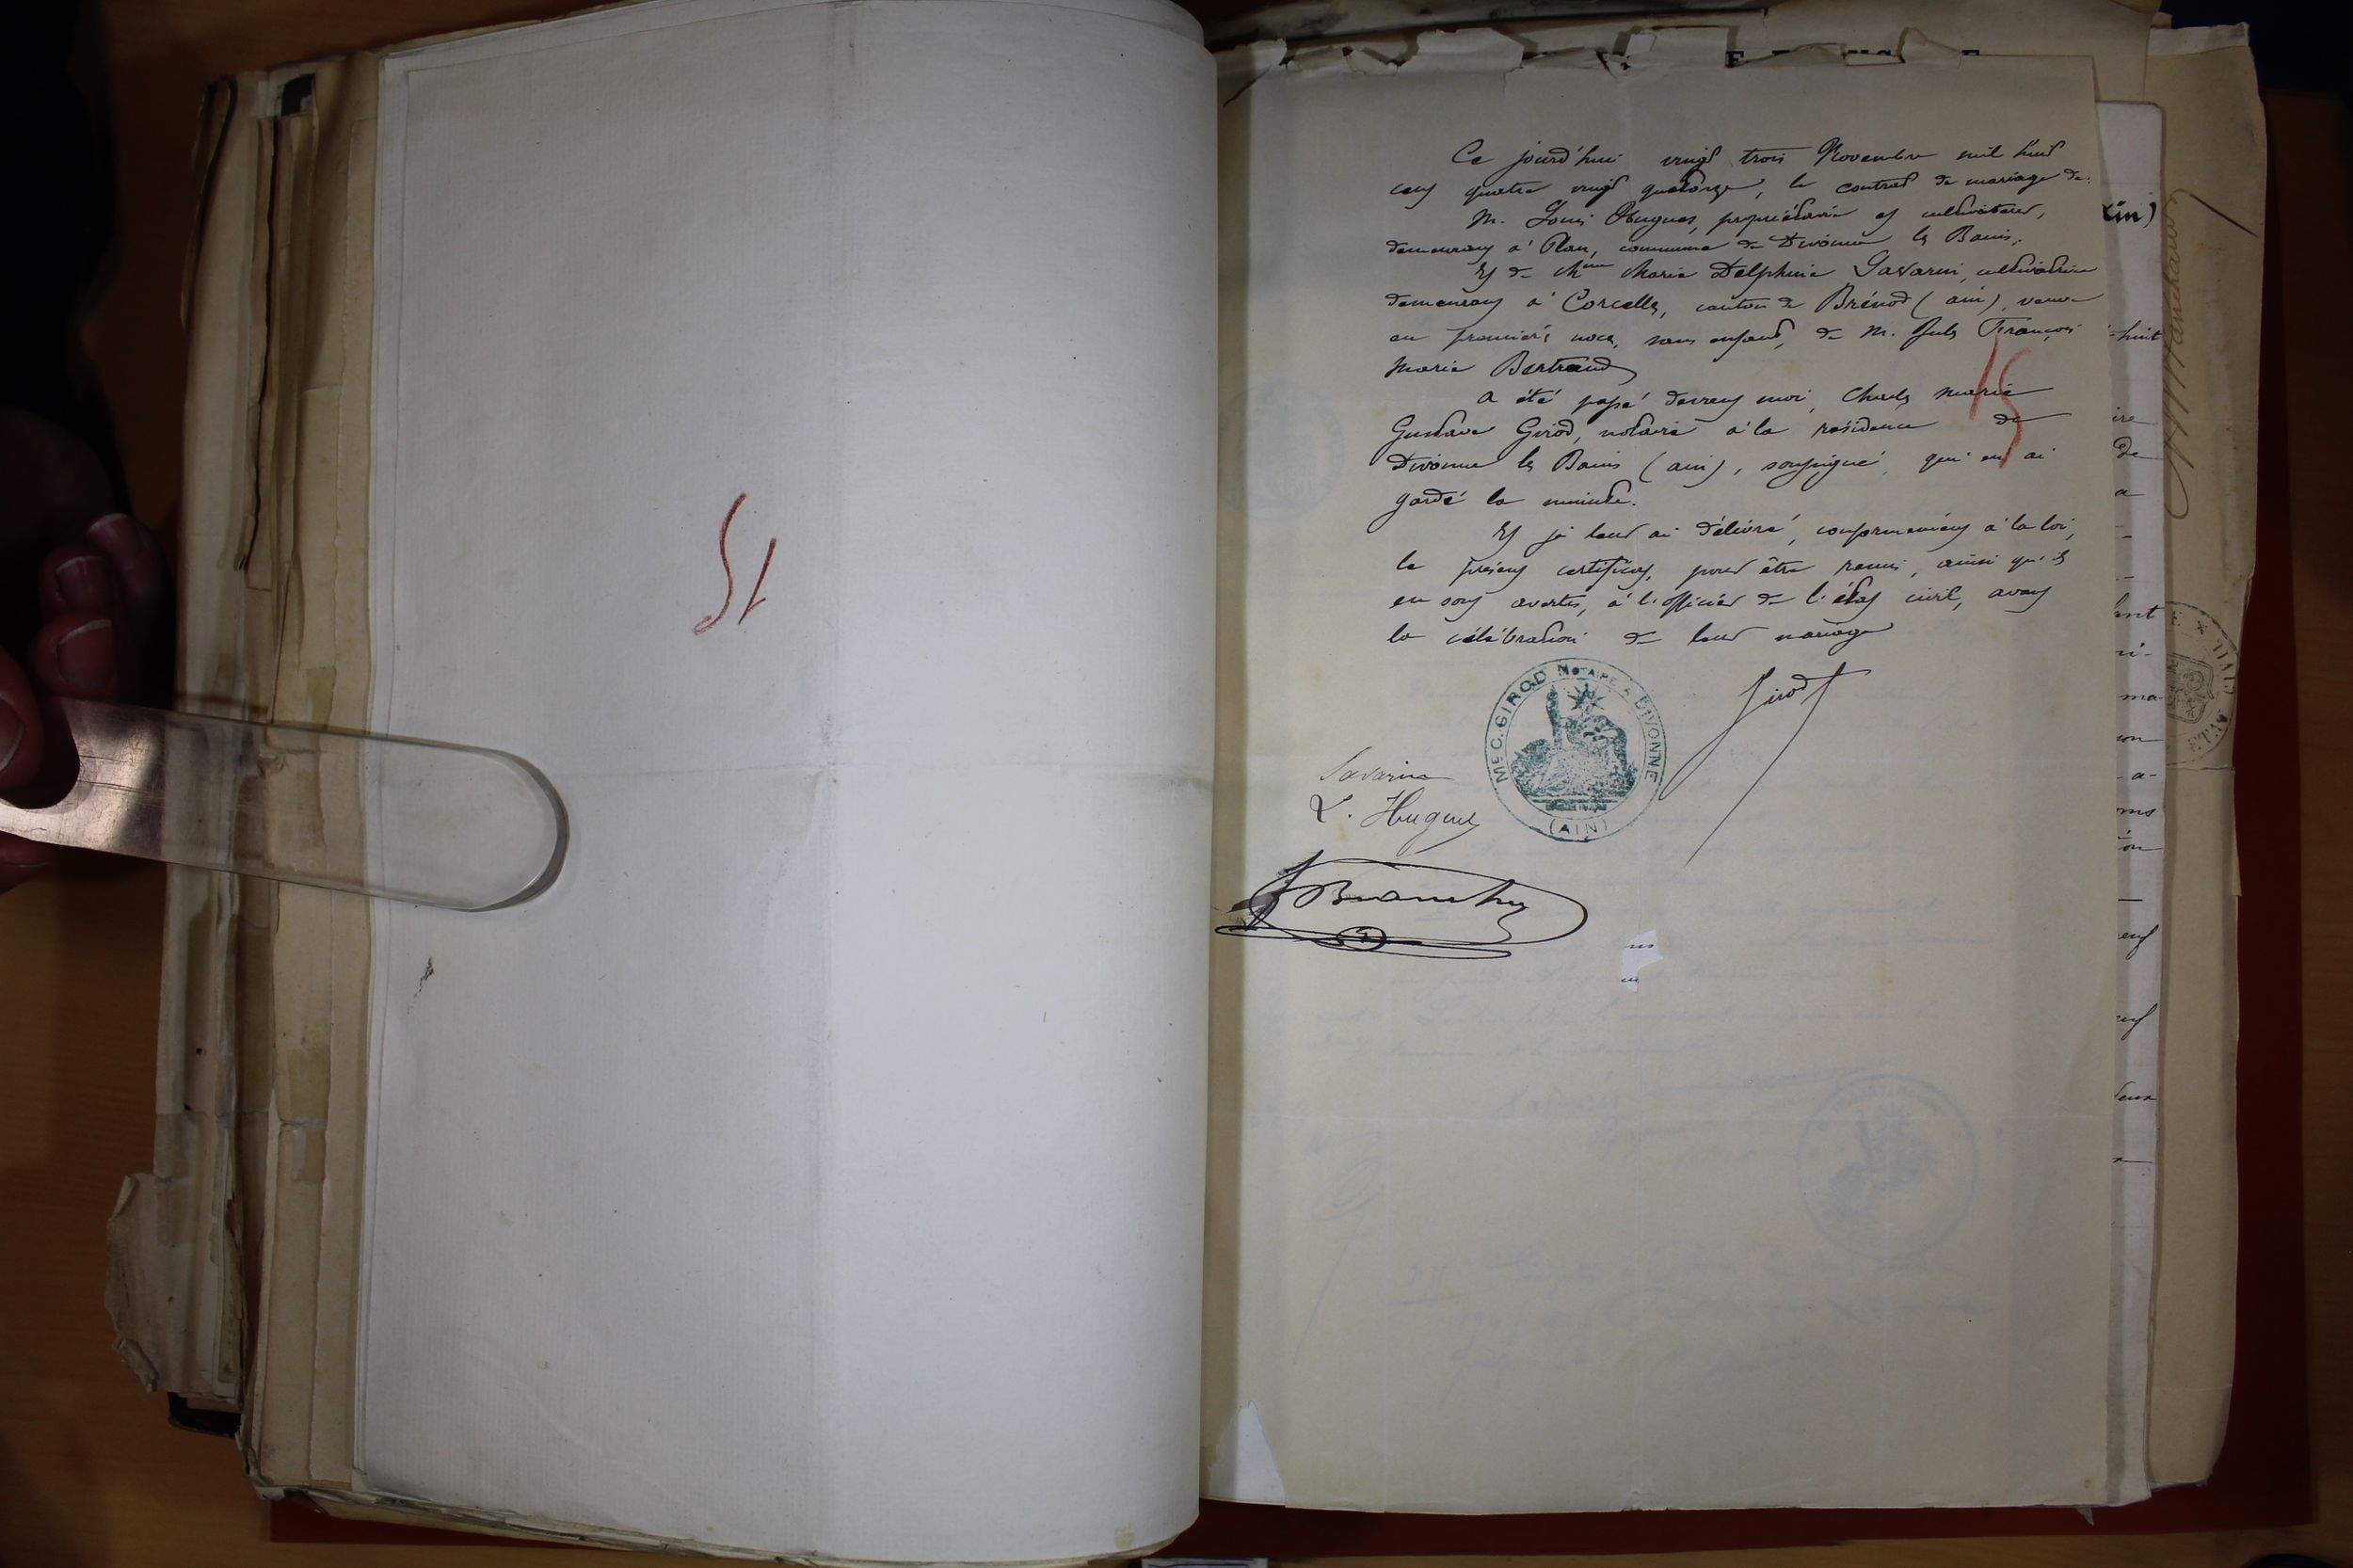 15
Ce jourd'hui vingt trois Novembre mil huit
cent quatre vingt quatorze, le contrat de mariage de:
M. Louis Hugues, propriétaire et cultivateur,
demeurant à Plan, commune de Divonne les Bains,
Et de Mme Marie Delphine Savarin, cultivatrice
demeurant à Corcelles, canton de Brénod (ain), veuve
en premières noces, sans enfant, de M. Jules François
Marie Bertrand
15
a été passé devant moi, Charles Marie
Gustave Girod, notaire à la résidence de
Divonne les Bains (ain), soussigné, qui en ai
gardé la minute.
Et je leur ai délivré, conformément à la loi,
le présent certificat, pour être remis, ainsi qu'ils
en sont avertis, à l'officier de l'état civil, avant
la célébration de leur mariage
Girod
Me C. GIROD NOTAIRE A DIVONNE
(AIN)
Savarin
L. Hugues
ain)
huit
ire
de
a
ma-
on
a-
oms